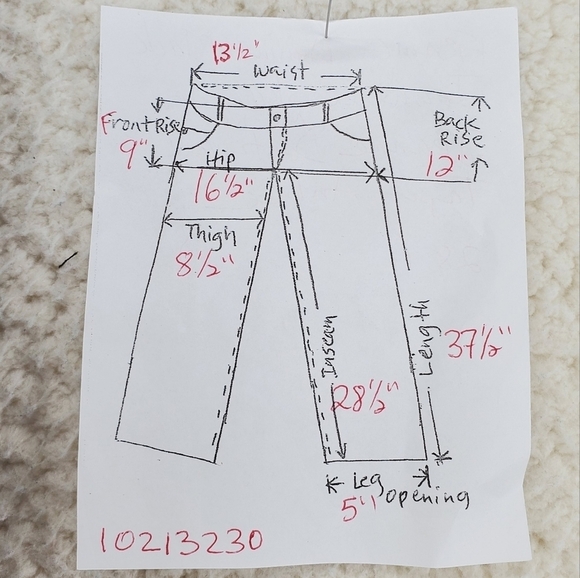 13 1/2"
Waist
Front Rise
9"
Back
Rise
12"
Hip
16 1/2"
Thigh
8 1/2"
Inseam
28 1/2"
Length
37 1/2"
Leg
opening
5"
10213230